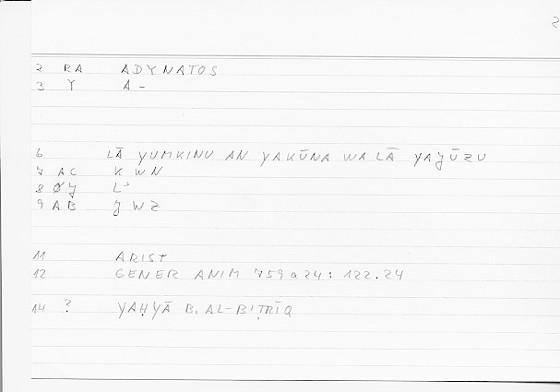 2
2 RA ADYNATOS
3 Y A-
6 LĀ YUMKINU AN YAKŪNA WA LĀ YAǦŪZU
7 AC KWN
8 ØǦ Lʾ
9 AB ǦWZ
11 ARIST
12 GENER ANIM 759a24: 122.24
14 ? YAḤYĀ B. AL-BIṬRĪQ